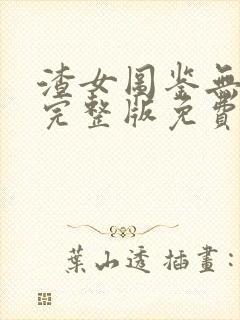 渣女图鉴無
完整版免費
葉山透 插畫: